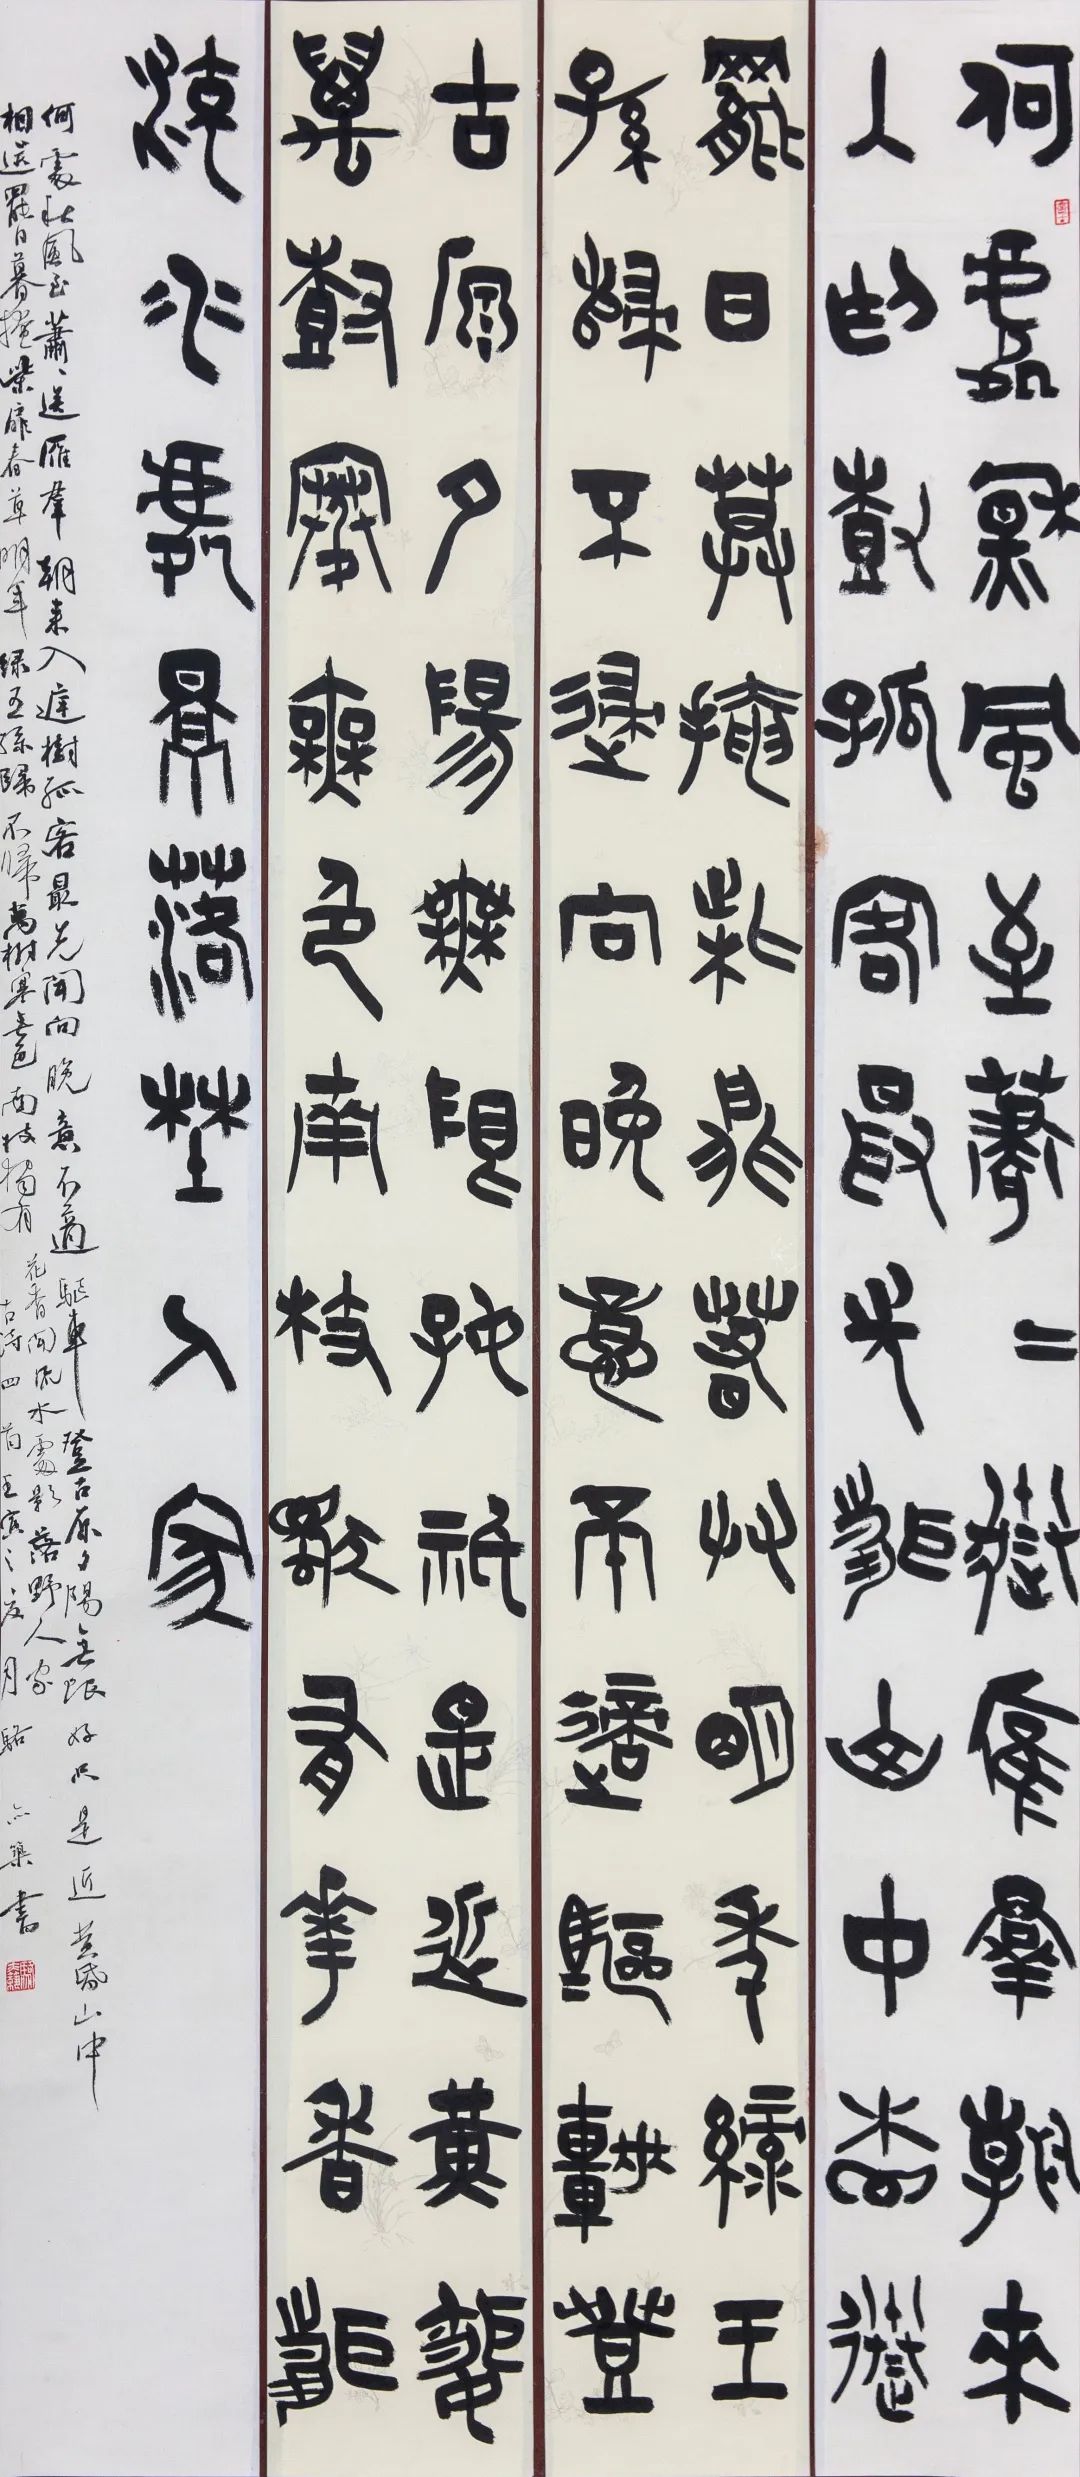 何處秋風至蕭〻送雁羣朝來
入庭樹孤客最先聞山中相送
罷日暮掩柴扉春草明年綠王
孫歸不歸向晚意不適驅車登
古原夕陽無限好祇是近黃昏
萬樹寒無色南枝獨有華香聞
流水處影落野人家
何處秋風至蕭〻送雁羣朝来入庭樹孤客最先聞向晚意不適驅車登古原夕陽無限好只是近黄昏山中
相送罷日暮掩柴扉春草明年绿王孫歸不歸萬樹寒無色南枝獨有花香聞流水處影落野人家
古诗四首壬寅之夏月駱書